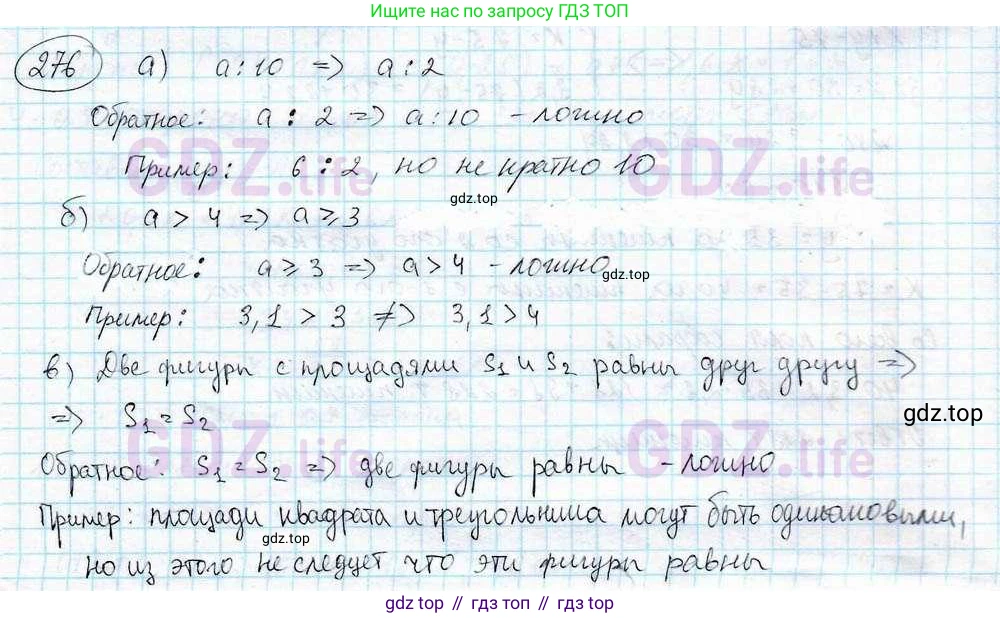 Ищите нас по запросу ГДЗ ТОП
276 а) a ⋮ 10 => a ⋮ 2
Обратное: a ⋮ 2 => a ⋮ 10 - ложно
GDZ.life GDZ.life
Пример: 6 ⋮ 2, но не кратно 10
gdz.top
б) a > 4 => a ⩾ 3
Обратное: a ⩾ 3 => a > 4 - ложно
gdz.top
Пример: 3,1 > 3 ≠> 3,1 > 4
в) Две фигуры с площадями S₁ и S₂ равны друг другу =>
=> S₁ = S₂
gdz.top
GDZ.life GDZ.life
Обратное: S₁ = S₂ => две фигуры равны - ложно
Пример: площади квадрата и треугольника могут быть одинаковыми,
gdz.top
но из этого не следует что эти фигуры равны
gdz top // гдз топ // gdz top